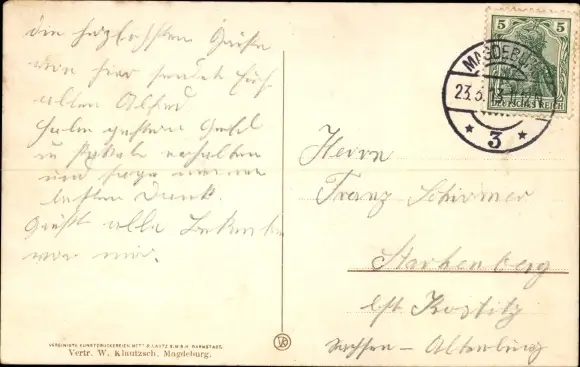 die herzlichsten Grüße
von hier sendet Euch
allen Alfred
Habe gestern
u Packet erhalten
und sage meinen
besten Dank.
Grüßt alle Bekannte
von mir.
VEREINIGTE KUNSTDRUCKEREIEN METZ & LAUTZ G.M.B.H. DARMSTADT.
Vertr. W. Klautzsch, Magdeburg.
5 5
DEUTSCHES REICH
MAGDEBURG
23.5.13
* 3 *
Herrn
Franz Schirmer
Starkenberg
Kostitz
Sachsen - Altenburg